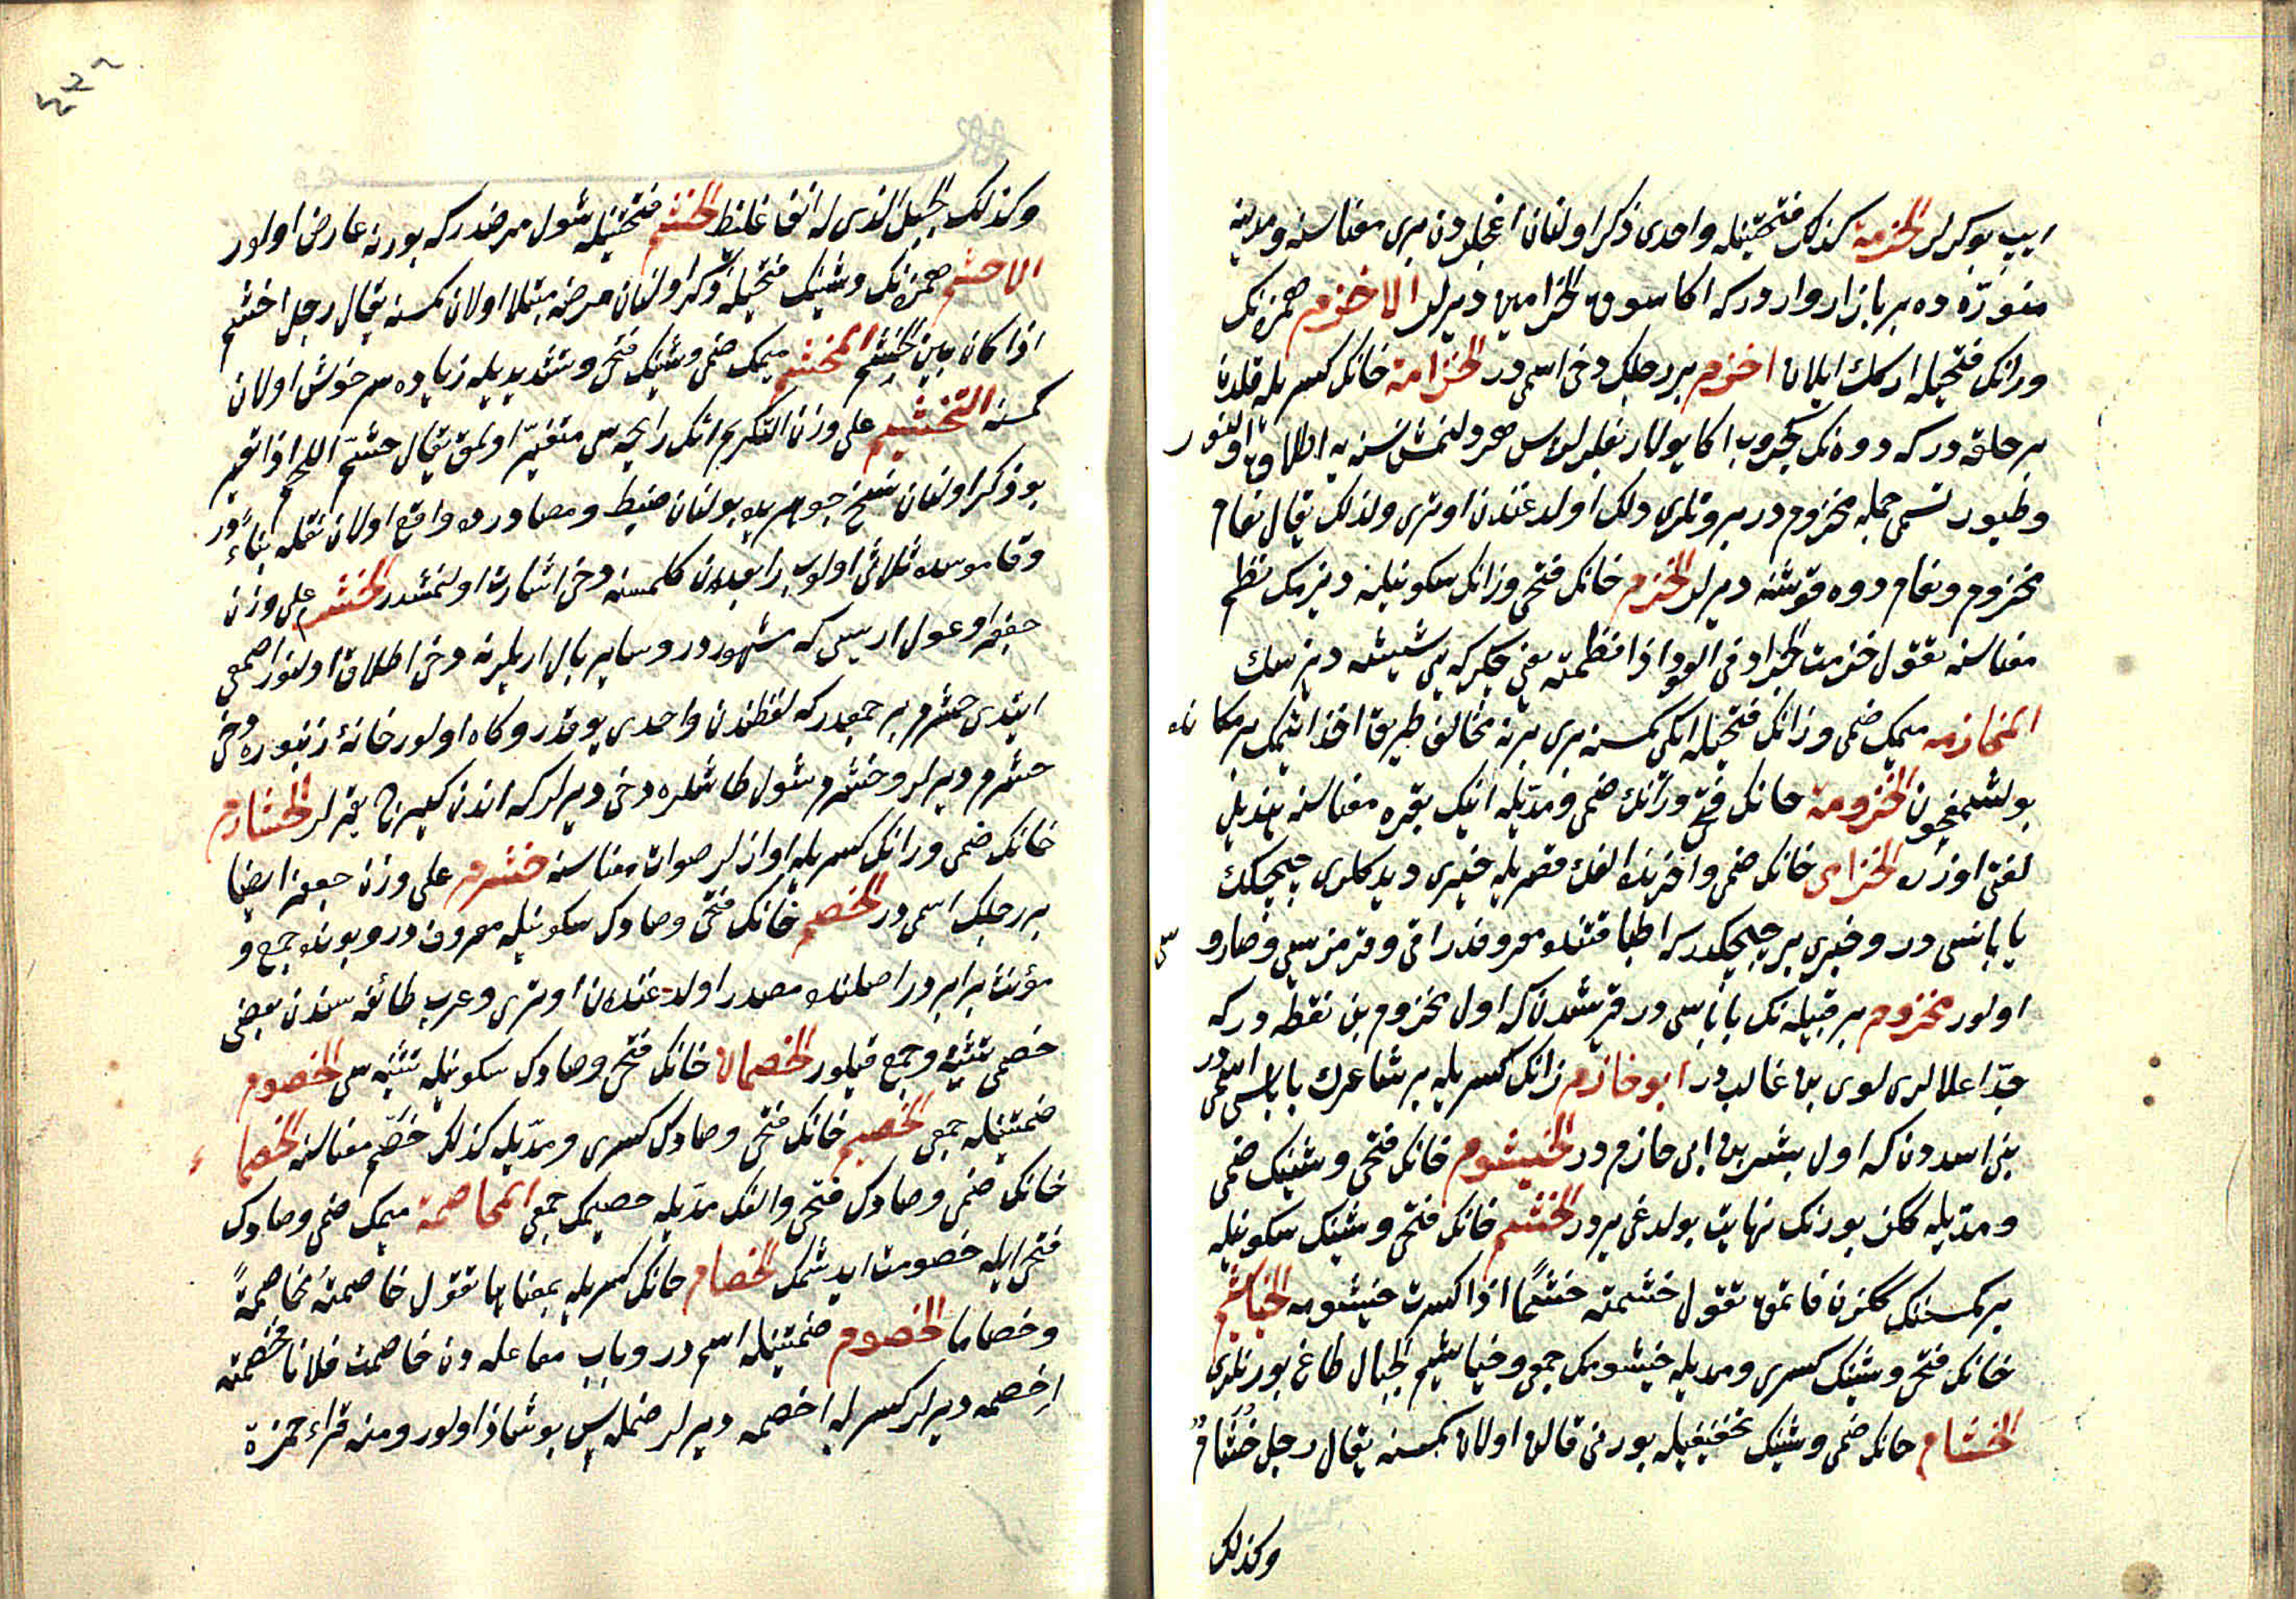 ايپ بوكرلر الخزمة كذلك فتحتينله واحدى ذكر اولنان اغجلردن برى معناسنه و مدينه
منوّره ده بر بازار واردر كه اكا سوق الخزامين ديرلر الاخزم همزنك
وزانك فتحيله اركك ايلان اخزم بر رجلك دخى اسمى در الخزامة خانك كسريله قلدن
بر حلقه در كه دوه نك بورننه كچروب اكا يولار بغلرلر اطلاق اولنور
وطيور تسمى جمله مخزوم در برونلرى دلك اولدغندن اوترى ولذلك يقال نعام
مخزوم ونعام دوه قوشنه ديرلر الخزم خانك فتحى وزانك سكونيله ديزمك نظم
معناسنه تقول خزمت الجراد فى العود اذا نظمته يعنى چكركه يى شيشه ديزسك
المخازمه ميمك ضمى وزانك فتحيله ايكى كمسنه برى برنه مخالف طريقه اخذ ايتمك بر مكانده
بولشمغچون الخزومة خانك فتحى وزانك ضمى ومدّيله اينك بقره معناسنه هذيل
لغتى اوزره الخزامى خانك ضمى واخرنده الفك قصريله خيرى ديدكلرى چيچكك
يابانسى در وخيرى بر چيچكدر كه اطبا قتنده معروفدر اق وقرمزيسى وصاروسى
اولور مخزوم بر قبيله نك باباسى در قريشدن كه اول مخزوم بن يقظه در كه
جدّ اعلالرى لوى بن غالب در ابو خازم زانك كسريله بر شاعرك باباسى اسمى در
بنى اسددن كه اول بشر بن ابى خازم در الخيشوم خانك فتحى وشينك ضمى
ومدّيله ككز بورنك نهايت بولدغى ير در الخشم خانك فتحى وشينك سكونيله
بر كمسنك ككزن قاتمق تقول خشمته خشمًا اذا كسرت خيشومه الخياشيم
خانك فتحى وشينك كسرى ومديله خيشومك جمعى وخياشيم الجبال طاغ بورنلرى
الخشام خانك ضمى وشينك تخفيفيله بورنى قالن اولان كمسنه يقال رجل خشام
وكذلك
وكذلك الجبل الذى له انف غليظ الخشم فتحتينله شول مرضدر كه بورنه عارض اولور
الاخشم همزنك وشينك فتحيله ذكر اولنان مرضه مبتلا اولان كمسنه يقال رجل اخشم
اذا كان بين الخشم المخشّم ميمك ضمى وشينك فتحى وتشديديله زياده سرخوش اولان
كمسنه التخشيم على وزن التكريم اتك رايحه سى متغيّر اولمق يقال خشّم اللحم اذا تغير
بو ذكر اولنان نسخ جوهريده بولنان ضبط ومصادرده واقع اولان نقله بناءً در
وقاموسده ثلاثى اولوب رابعدن كلمسنه دخى اشارت اولنمشدر الخشرم على وزن
جعفر اوغول اريسى كه مشهوردر وساير بال اريلرينه دخى اطلاق اولنور اصمعى
ايتدى خشرم بر جمعدر كه لفظندن واحدى يوقدر وكاه اولور خانۀ زنبوره دخى
خشرم ديرلر وخشرم شول طاشلره دخى ديرلر كه اندن كيرج يقرلر الخشارم
خانك ضمى ورانك كسريله اوازلر صوات معناسنه خشرم على وزن جعفر ايضا
بر رجلك اسمى در الخصم خانك فتحى وصادك سكونيله معروف در وبونده جمع و
مؤنث برابردر اصلنده مصدر اولدغندن اوترى وعرب طائفه سندن بعضى
خصمى تثنيه وجمع قيلور الخصمان خانك فتحى وصادك سكونيله تثنيه سى الخصوم
ضمتينله جمعى الخصيم خانك فتحى وصادك كسرى ومدّيله كذلك خصم معناسنه الخصماء
خانك ضمى وصادك فتحى والفك مدّيله خصيمك جمعى المخاصمة ميمك ضمى وصادك
فتحى ايله خصومت ايدشمك الخصام خانك كسريله بمعناها تقول خاصمته مخاصمةً
وخصاما الخصوم ضمتينله اسم در وباب مفاعله دن خاصمت فلانا فخصمته
اخصمه ديرلر كسريله اخصمه ديرلر ضمله بس بو شاذ اولور ومنه قراءة حمزة